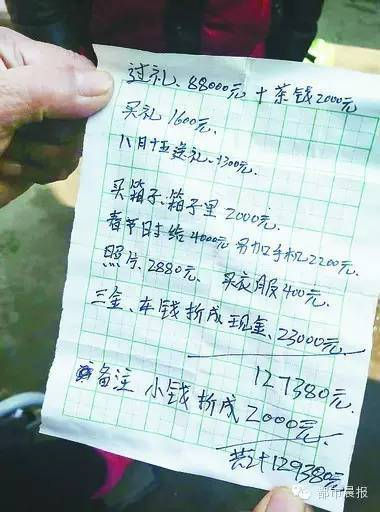 过礼、88000元 十茶钱2000元
买礼 1600元.
八月十五送礼、1300元.
买箱子、箱子里 2000元.
春节时给 4000元 另加手机2200元.
照片、2880元、 买衣服400元.
三金、车钱折成现金、23000元.
127380元.
备注 小钱折成2000元
共计129380元
都市晨报